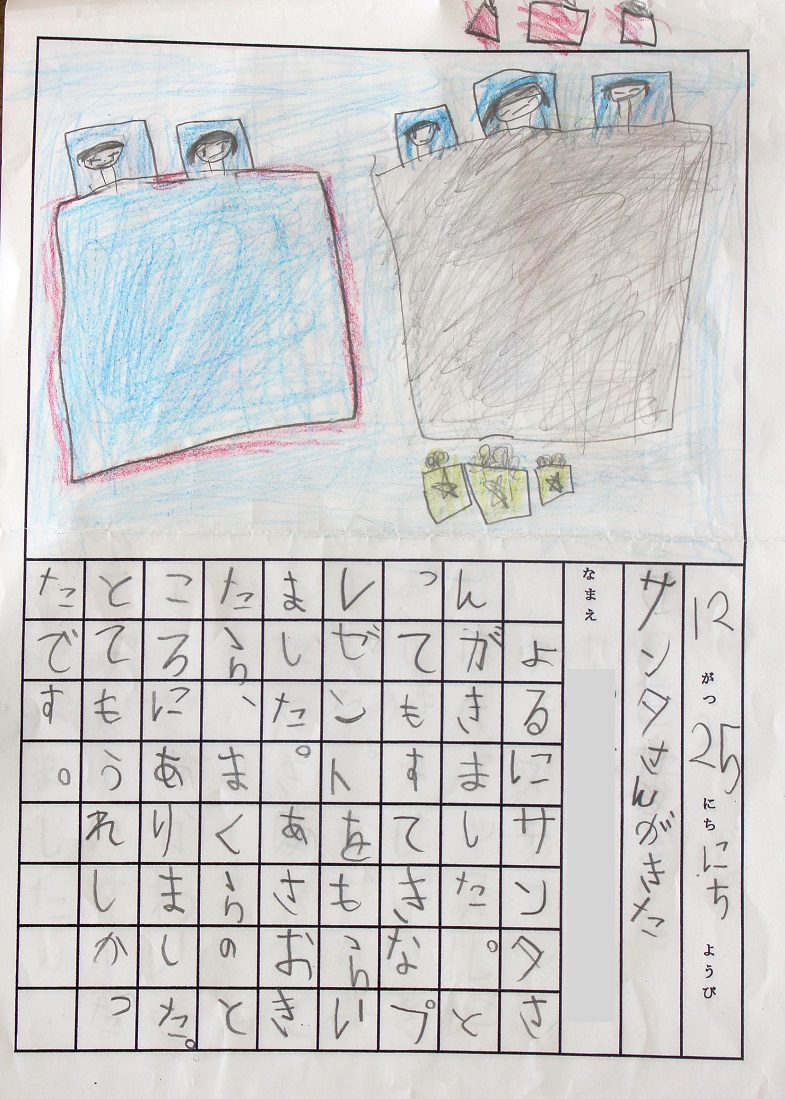 12がつ25にちにちようび
サンタさんがきた
なまえ
よるにサンタさ
んがきました。と
ってもすてきなプ
レゼントをもらい
ました。あさおき
たら、まくらのと
ころにありました。
とてもうれしかっ
たです。